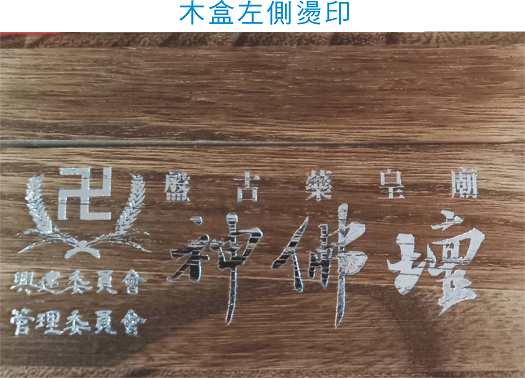 木盒左側燙印
盤古藥皇廟
神佛壇
卍
興建委員會
管理委員會